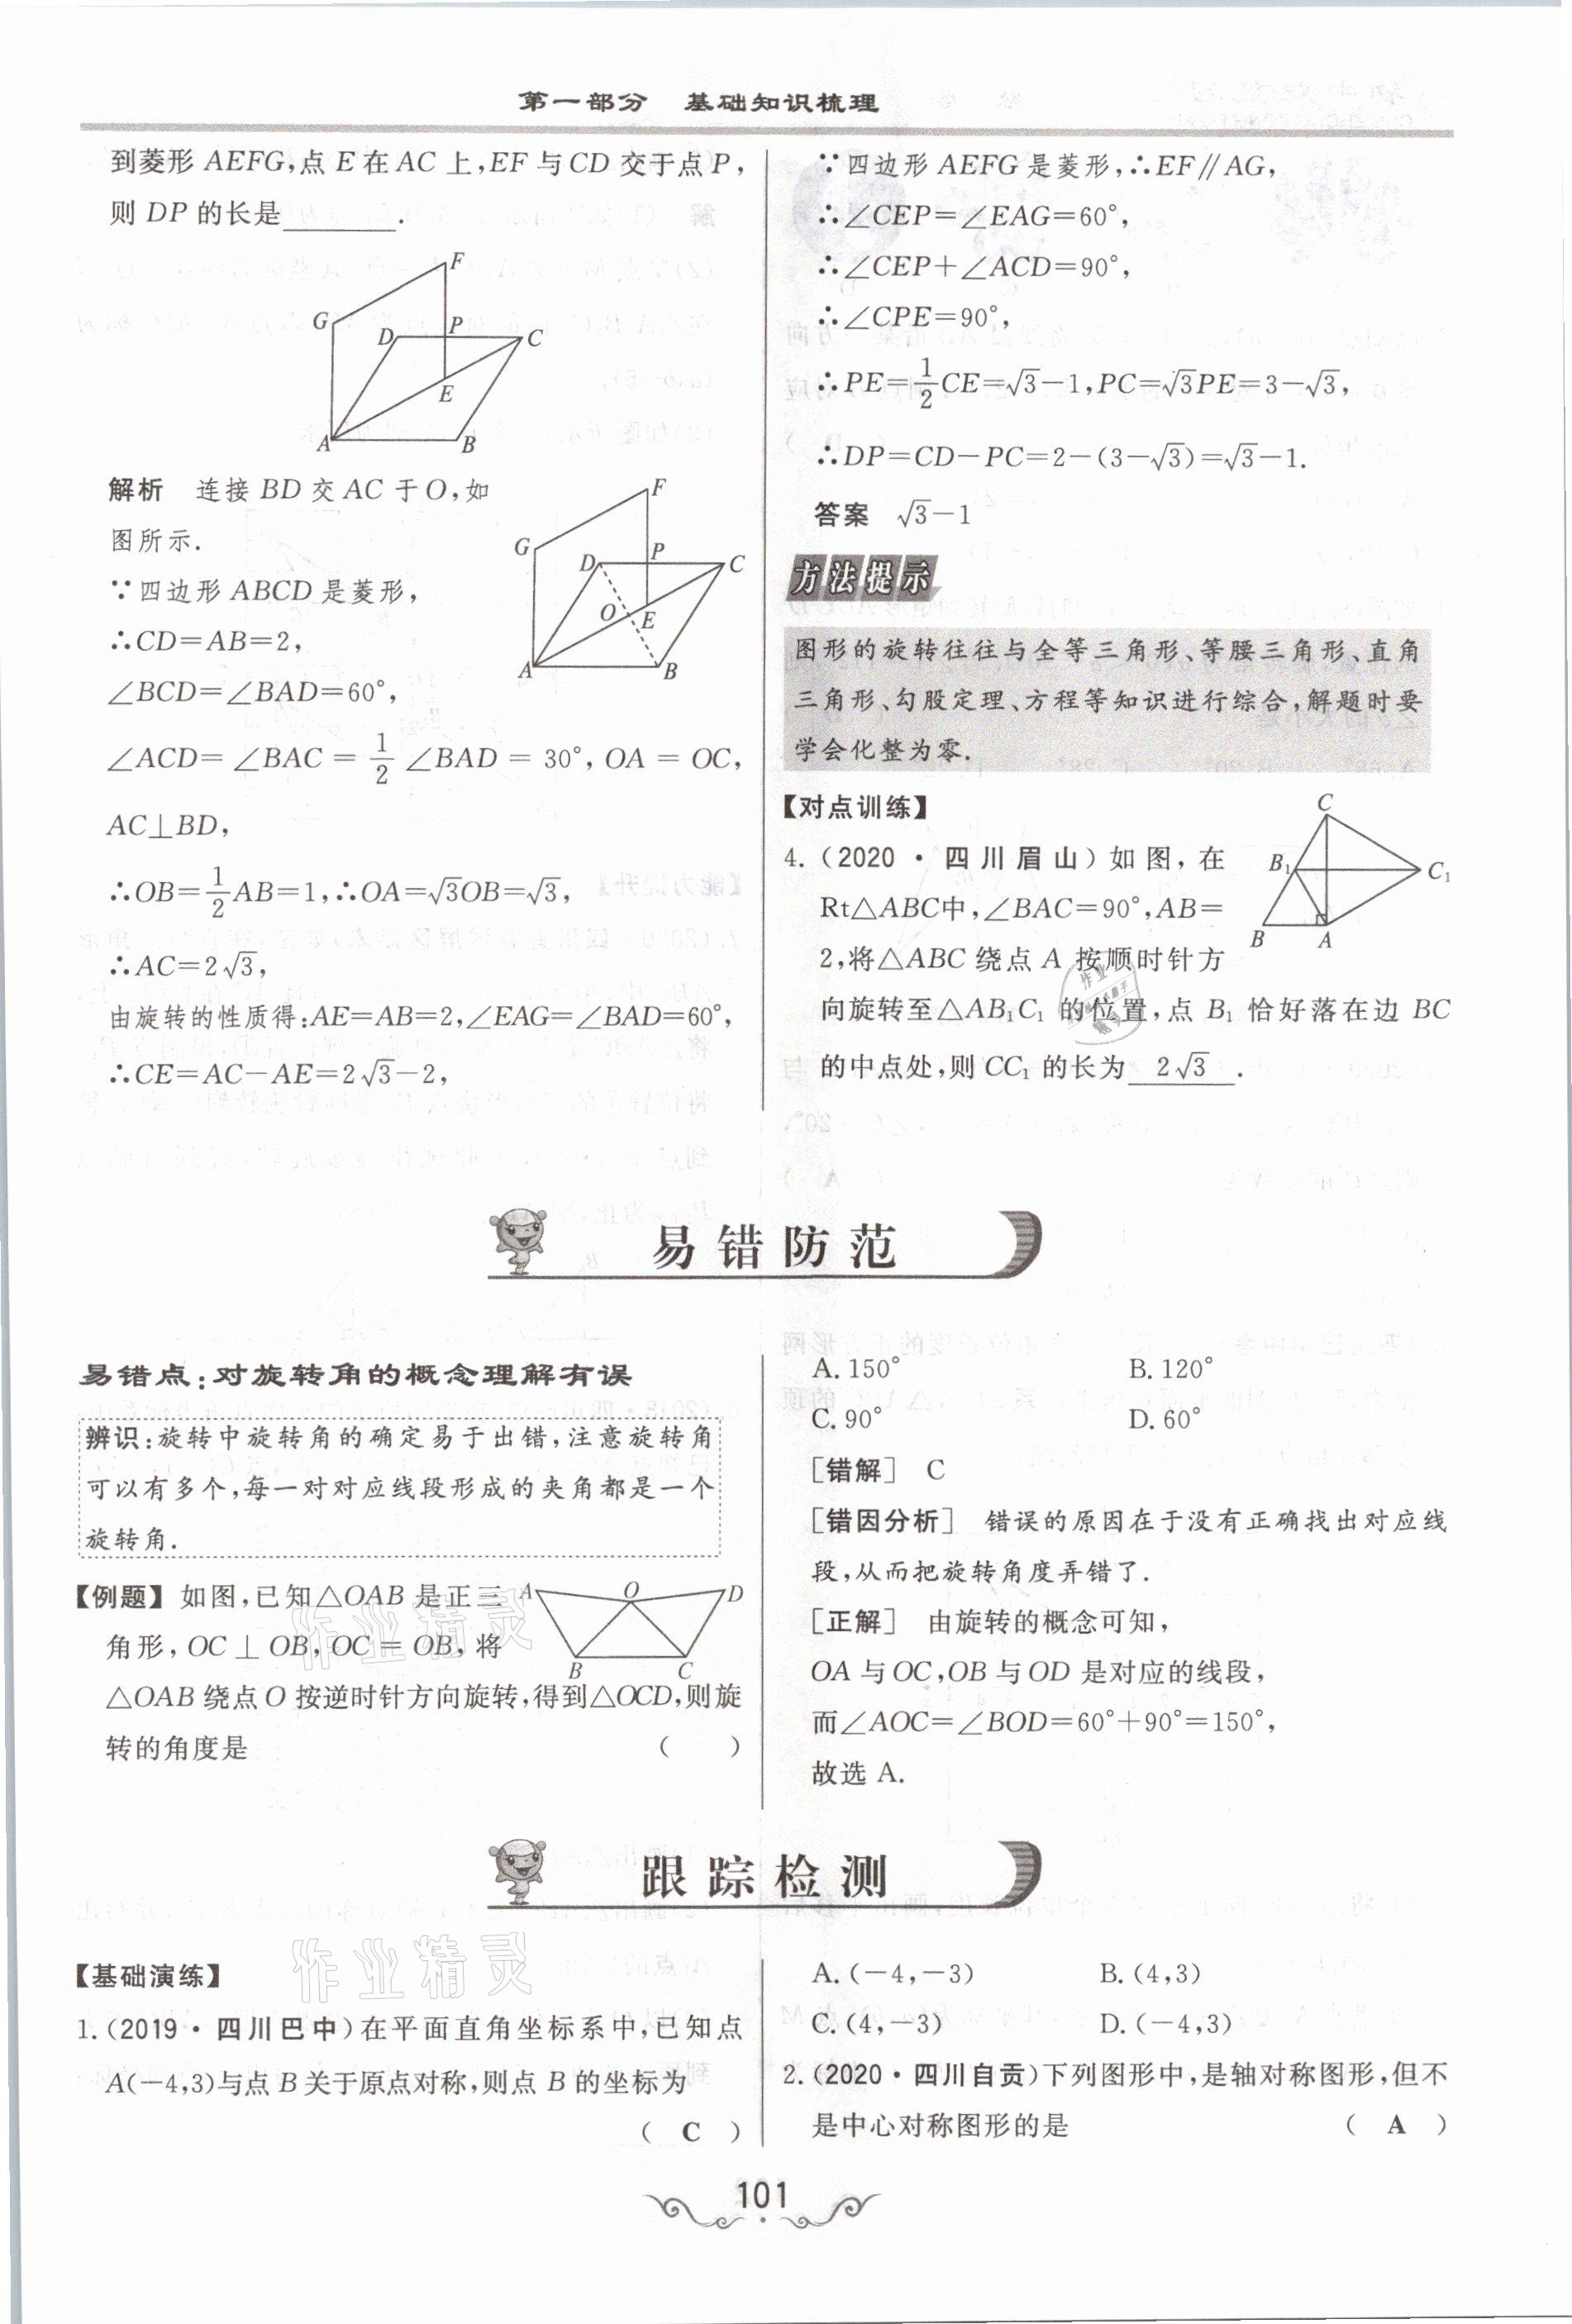 第一部分　基础知识梳理
到菱形 AEFG,点 E 在 AC 上,EF 与 CD 交于点 P,
则 DP 的长是________.
F
G
D
P
C
E
A
B
解析　连接 BD 交 AC 于 O,如
图所示.
∵四边形 ABCD 是菱形,
∴CD=AB=2,
∠BCD=∠BAD=60°,
F
G
D
P
C
O
E
A
B
∠ACD=∠BAC=1/2∠BAD=30°,OA=OC,
AC⊥BD,
∴OB=1/2AB=1,∴OA=√3OB=√3,
∴AC=2√3,
由旋转的性质得:AE=AB=2,∠EAG=∠BAD=60°,
∴CE=AC-AE=2√3-2,
∵四边形 AEFG 是菱形,∴EF∥AG,
∴∠CEP=∠EAG=60°,
∴∠CEP+∠ACD=90°,
∴∠CPE=90°,
∴PE=1/2CE=√3-1,PC=√3PE=3-√3,
∴DP=CD-PC=2-(3-√3)=√3-1.
答案　√3-1
方法提示
图形的旋转往往与全等三角形、等腰三角形、直角
三角形、勾股定理、方程等知识进行综合,解题时要
学会化整为零.
【对点训练】
4.(2020·四川眉山)如图,在
Rt△ABC中,∠BAC=90°,AB=
2,将△ABC 绕点 A 按顺时针方
向旋转至△AB₁C₁ 的位置,点 B₁ 恰好落在边 BC
的中点处,则 CC₁ 的长为 2√3 .
C
B₁
C₁
B
A
易错防范
易错点:对旋转角的概念理解有误
辨识:旋转中旋转角的确定易于出错,注意旋转角
可以有多个,每一对对应线段形成的夹角都是一个
旋转角.
【例题】 如图,已知△OAB 是正三
角形,OC⊥OB,OC=OB,将
△OAB 绕点 O 按逆时针方向旋转,得到△OCD,则旋
转的角度是　(　　)
A
O
D
B
C
A.150°　B.120°
C.90°　D.60°
[错解]　C
[错因分析]　错误的原因在于没有正确找出对应线
段,从而把旋转角度弄错了.
[正解]　由旋转的概念可知,
OA 与 OC,OB 与 OD 是对应的线段,
而∠AOC=∠BOD=60°+90°=150°,
故选 A.
跟踪检测
【基础演练】
1.(2019·四川巴中)在平面直角坐标系中,已知点
A(-4,3)与点 B 关于原点对称,则点 B 的坐标为
( C )
A.(-4,-3)　B.(4,3)
C.(4,-3)　D.(-4,3)
2.(2020·四川自贡)下列图形中,是轴对称图形,但不
是中心对称图形的是　( A )
101
作业精灵
作业精灵